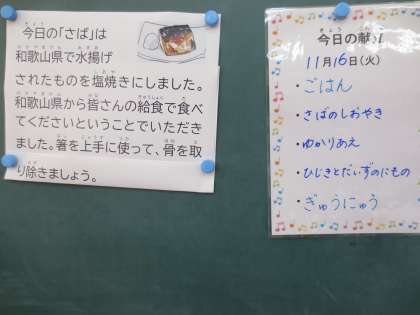 今日の「さば」は
和歌山県で水揚げ
されたものを塩焼きにしました。
和歌山県から皆さんの給食で食べ
てくださいということでいただき
ました。箸を上手に使って、骨を取
り除きましょう。
今日の献立
11月16日(火)
・ごはん
・さばのしおやき
・ゆかりあえ
・ひじきとだいずのにもの
・ぎゅうにゅう